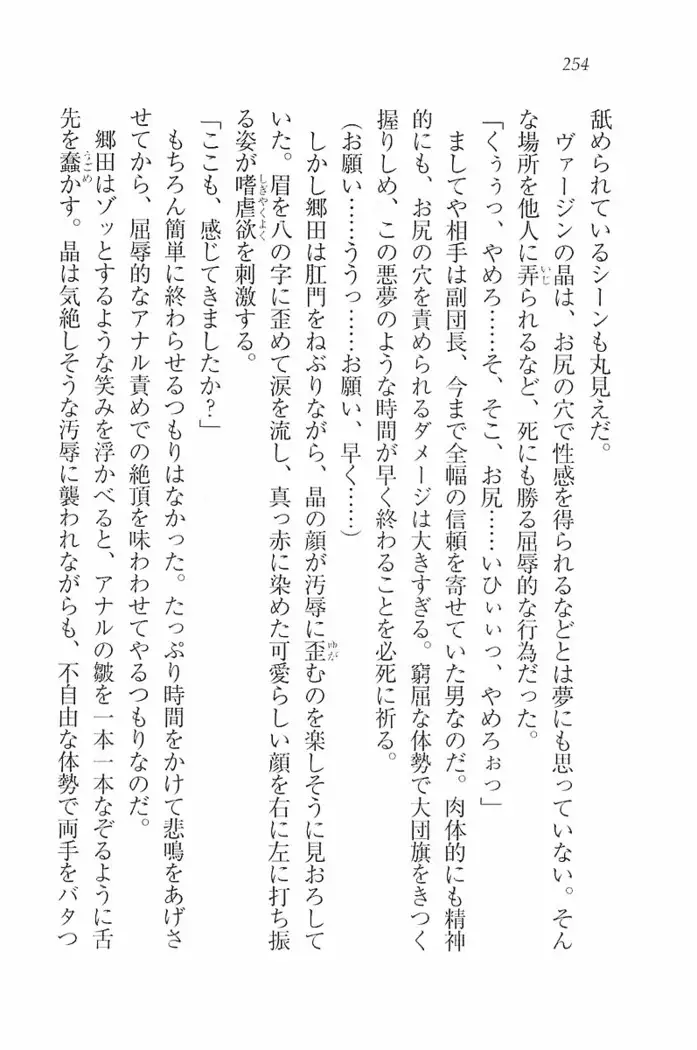 254
舐められているシーンも丸見えだ。
ヴァージンの晶は、お尻の穴で性感を得られるなどとは夢にも思っていない。そん
な場所を他人に弄られるなど、死にも勝る屈辱的な行為だった。
「くぅぅっ、やめろ……そ、そこ、お尻……いひぃぃっ、やめろぉっ」
ましてや相手は副団長、今まで全幅の信頼を寄せていた男なのだ。肉体的にも精神
的にも、お尻の穴を責められるダメージは大きすぎる。窮屈な体勢で大団旗をきつく
握りしめ、この悪夢のような時間が早く終わることを必死に祈る。
(お願い……ううっ……お願い、早く……)
しかし郷田は肛門をねぶりながら、晶の顔が汚辱に歪むのを楽しそうに見おろして
いた。眉を八の字に歪めて涙を流し、真っ赤に染めた可愛らしい顔を右に左に打ち振
る姿が嗜虐欲を刺激する。
「ここも、感じてきましたか？」
もちろん簡単に終わらせるつもりはなかった。たっぷり時間をかけて悲鳴をあげさ
せてから、屈辱的なアナル責めでの絶頂を味わわせてやるつもりなのだ。
郷田はゾッとするような笑みを浮かべると、アナルの皺を一本一本なぞるように舌
先を蠢かす。晶は気絶しそうな汚辱に襲われながらも、不自由な体勢で両手をバタつ